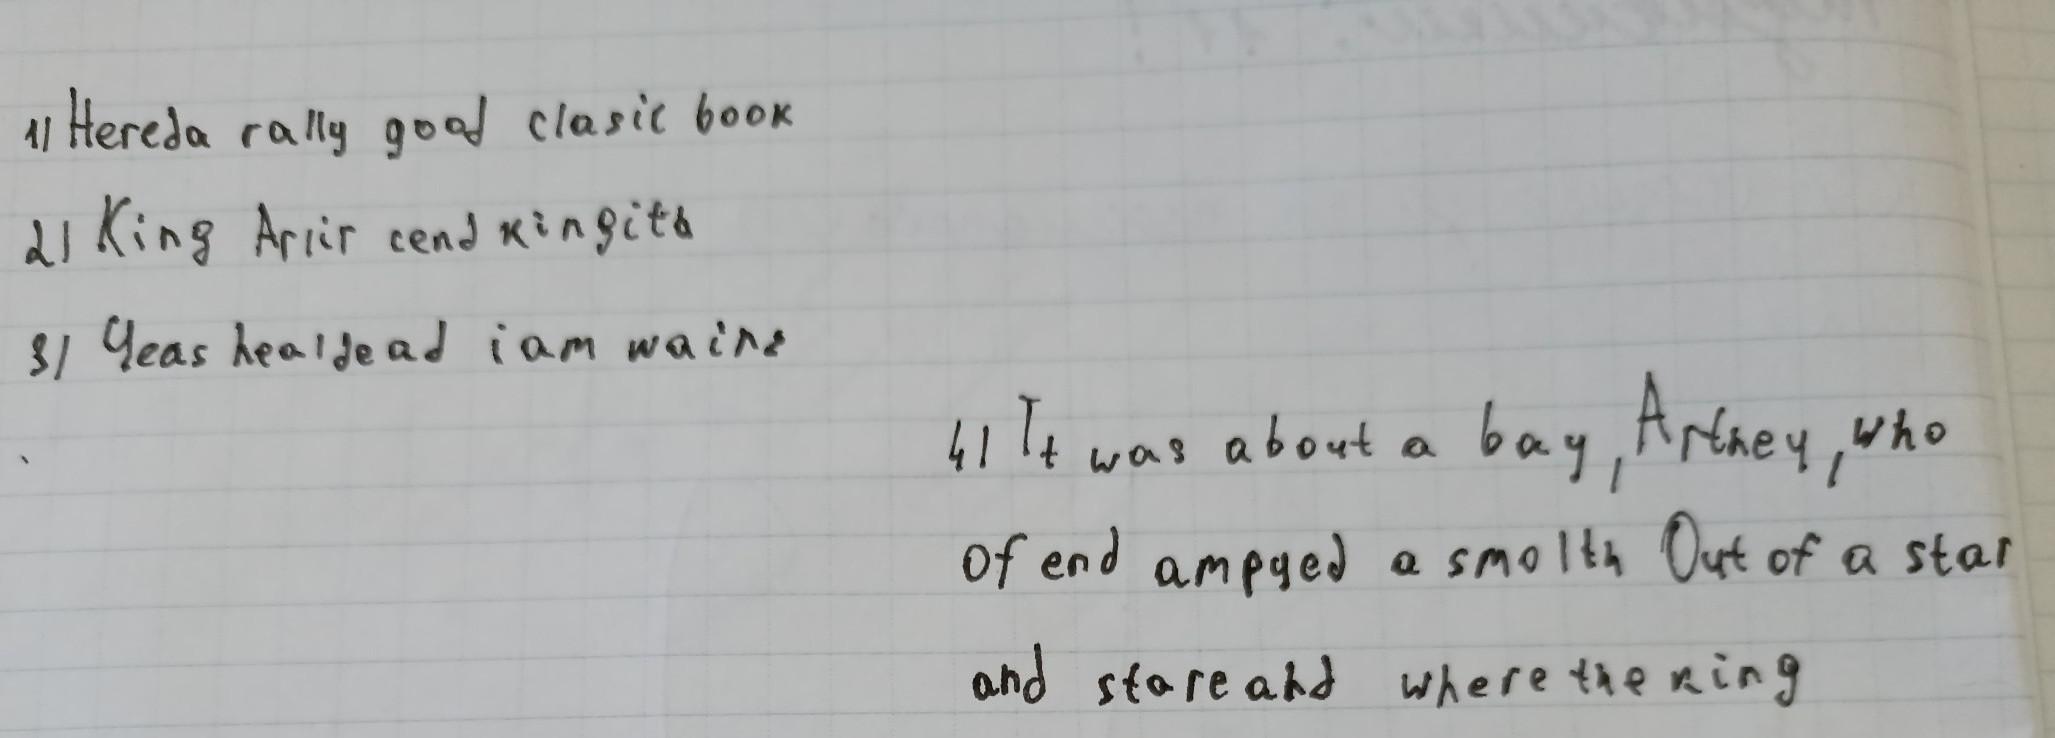 1) Hereda rally good clasic book
2) King Ariir cend kingita
3) Yeas healdead i am waine
4) It was about a bay, Artney, who
Of end ampyed a smolth Out of a star
and stare and where the king